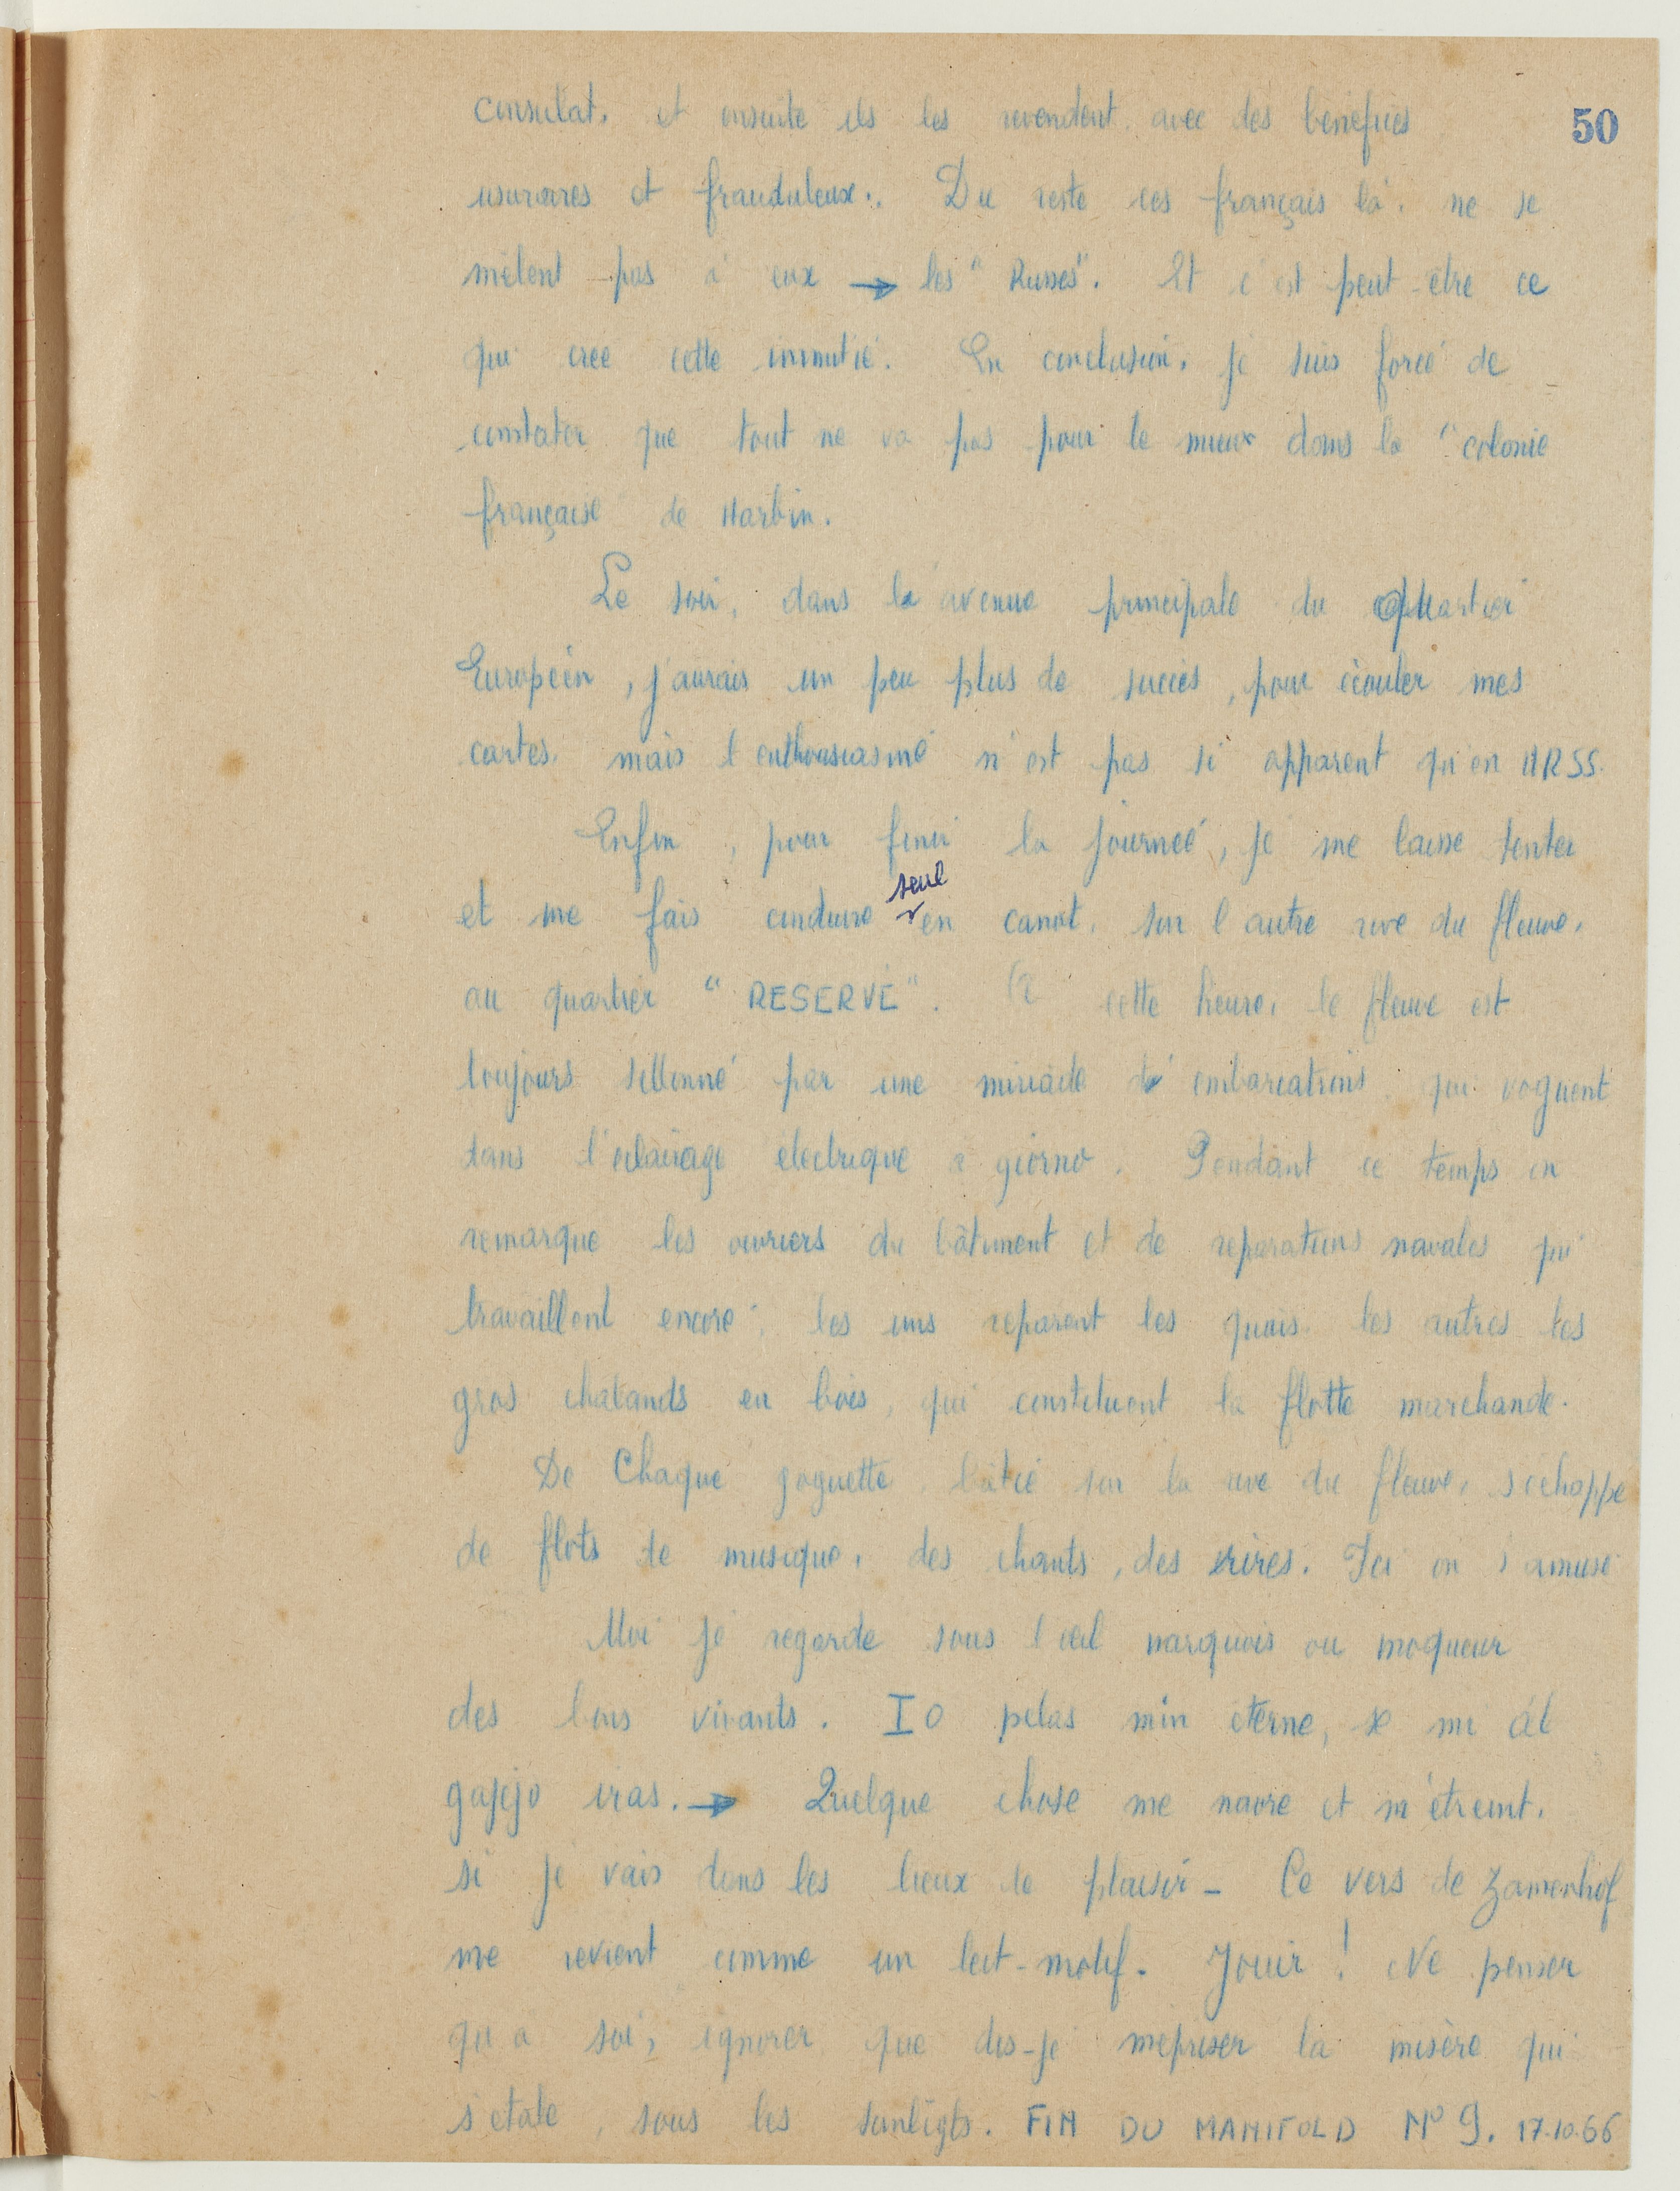 50
consulat, et ensuite ils les revendent avec des benefices
usuraires et frauduleux. Du reste ces français là, ne se
mêlent pas à eux → les "Russes". Et c'est peut-être ce
qui crée cette inimitié. En conclusion, je suis forcé de
constater que tout ne va pas pour le mieux dans la "colonie
française de Harbin.
Le soir, dans l'avenue principale du quartier
Européen, j'aurais un peu plus de succès, pour écouler mes
cartes, mais l'enthousiasme n'est pas si apparent qu'en URSS.
Enfin, pour finir la journeé, je me laisse tenter
et me fais conduire seul en canot, sur l'autre rive du fleuve,
au quartier "RESERVÉ". A cette heure, le fleuve est
toujours sillonné par une miriade d'embarcations qui voguent
dans l'eclairage electrique a giorno. Pendant ce temps on
remarque les ouvriers du bâtiment et de reparations navales qui
travaillent encore; les uns reparent les quais, les autres les
gros chalands en bois, qui constituent la flotte marchande.
De Chaque goguette bâtie sur la rive du fleuve, s'échappe
de flots de musique, des chants, des rires. Ici on s'amuse
Moi je regarde sous l'œil narquois ou moqueur
des bons vivants. Io pelas min eterne, se mi al
gajejo iras. → Quelque chose me navre et m'étreint,
si je vais dans les lieux de plaisir - Ce vers de Zamenhof
me revient comme un leit-motif. Jouir ! Ne penser
qu'a soi, ignorer que dis-je mepriser la misère qui
s'etale, sous les sunligts. FIN DU MANIFOLD N° 9. 17.10.66